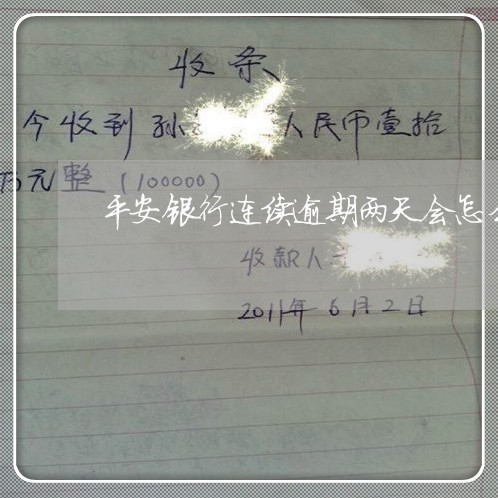 收条
今收到孙 人民币壹拾
万元整（100000）
平安银行连续逾期两天会怎
收款人
2011年6月2日